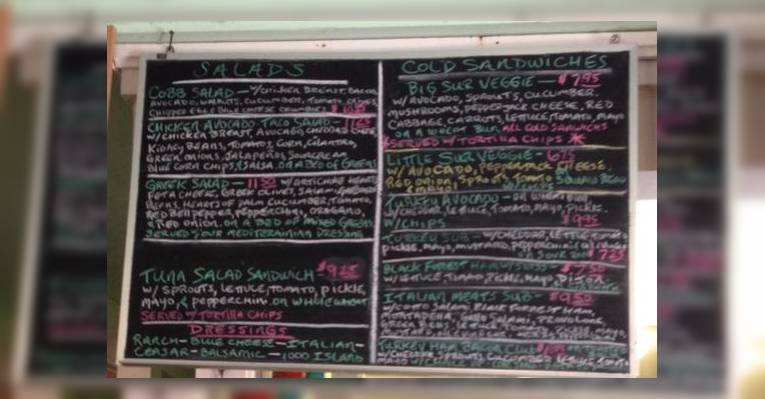 SALADS
COBB SALAD - W/CHICKEN BREAST, BACON,
AVOCADO, WALNUTS, CUCUMBER, TOMATO, OLIVES,
CHOPPED EGG & BLUE CHEESE CRUMBLES
CHICKEN AVOCADO TACO SALAD -
W/CHICKEN BREAST, AVOCADO, CHEDDAR CHEESE,
KIDNEY BEANS, TOMATO, CORN, CILANTRO,
GREEN ONIONS, JALAPEÑOS, SOUR CREAM
BLUE CORN CHIPS, & SALSA. ON A BED OF GREENS
GREEK SALAD - 11.50 W/ARTICHOKE HEARTS,
FETA CHEESE, GREEK OLIVES, SALAMI,
BEANS, HEARTS OF PALM, CUCUMBER, TOMATO,
RED BELL PEPPER, PEPPERCHINI, OREGANO,
& RED ONION. ON A BED OF MIXED GREENS
SERVED W/OUR MEDITERRANEAN DRESSING
TUNA SALAD SANDWICH - $9.25
W/ SPROUTS, LETTUCE, TOMATO, PICKLE,
MAYO, & PEPPERCHINI. ON WHOLE WHEAT
SERVED W/ TORTILLA CHIPS
DRESSINGS
RANCH - BLUE CHEESE - ITALIAN -
CEASAR - BALSAMIC - 1000 ISLAND
COLD SANDWICHES
BIG SUR VEGGIE - $7.95
W/ AVOCADO, SPROUTS, CUCUMBER,
MUSHROOMS, PEPPERJACK CHEESE, RED
CABBAGE, CARROTS, LETTUCE, TOMATO, MAYO
ON A WHEAT BUN. ALL COLD SANDWICHES
SERVED W/ TORTILLA CHIPS
LITTLE SUR VEGGIE - 6.75
W/ AVOCADO, PEPPERJACK CHEESE,
RED ONION, SPROUTS, TOMATO
TURKEY AVOCADO - ON WHEAT
W/CHEDDAR, LETTUCE, TOMATO, MAYO, PICKLE.
W/CHIPS $9.95
TURKEY SUB - W/CHEDDAR, LETTUCE, TOMATO
PICKLE, MAYO, MUSTARD, PEPPERCHINI
BLACK FOREST HAM/SWISS - $7.50
W/ LETTUCE, TOMATO, PICKLE, MAYO, DIJON
ITALIAN MEATS SUB - $9.50
W/COTTO SALAMI, BLACK FOREST HAM,
MORTADELLA, PROVOLONE,
TURKEY HAM BACON CLUB
W/CHEDDAR, SPROUTS, CUCUMBER